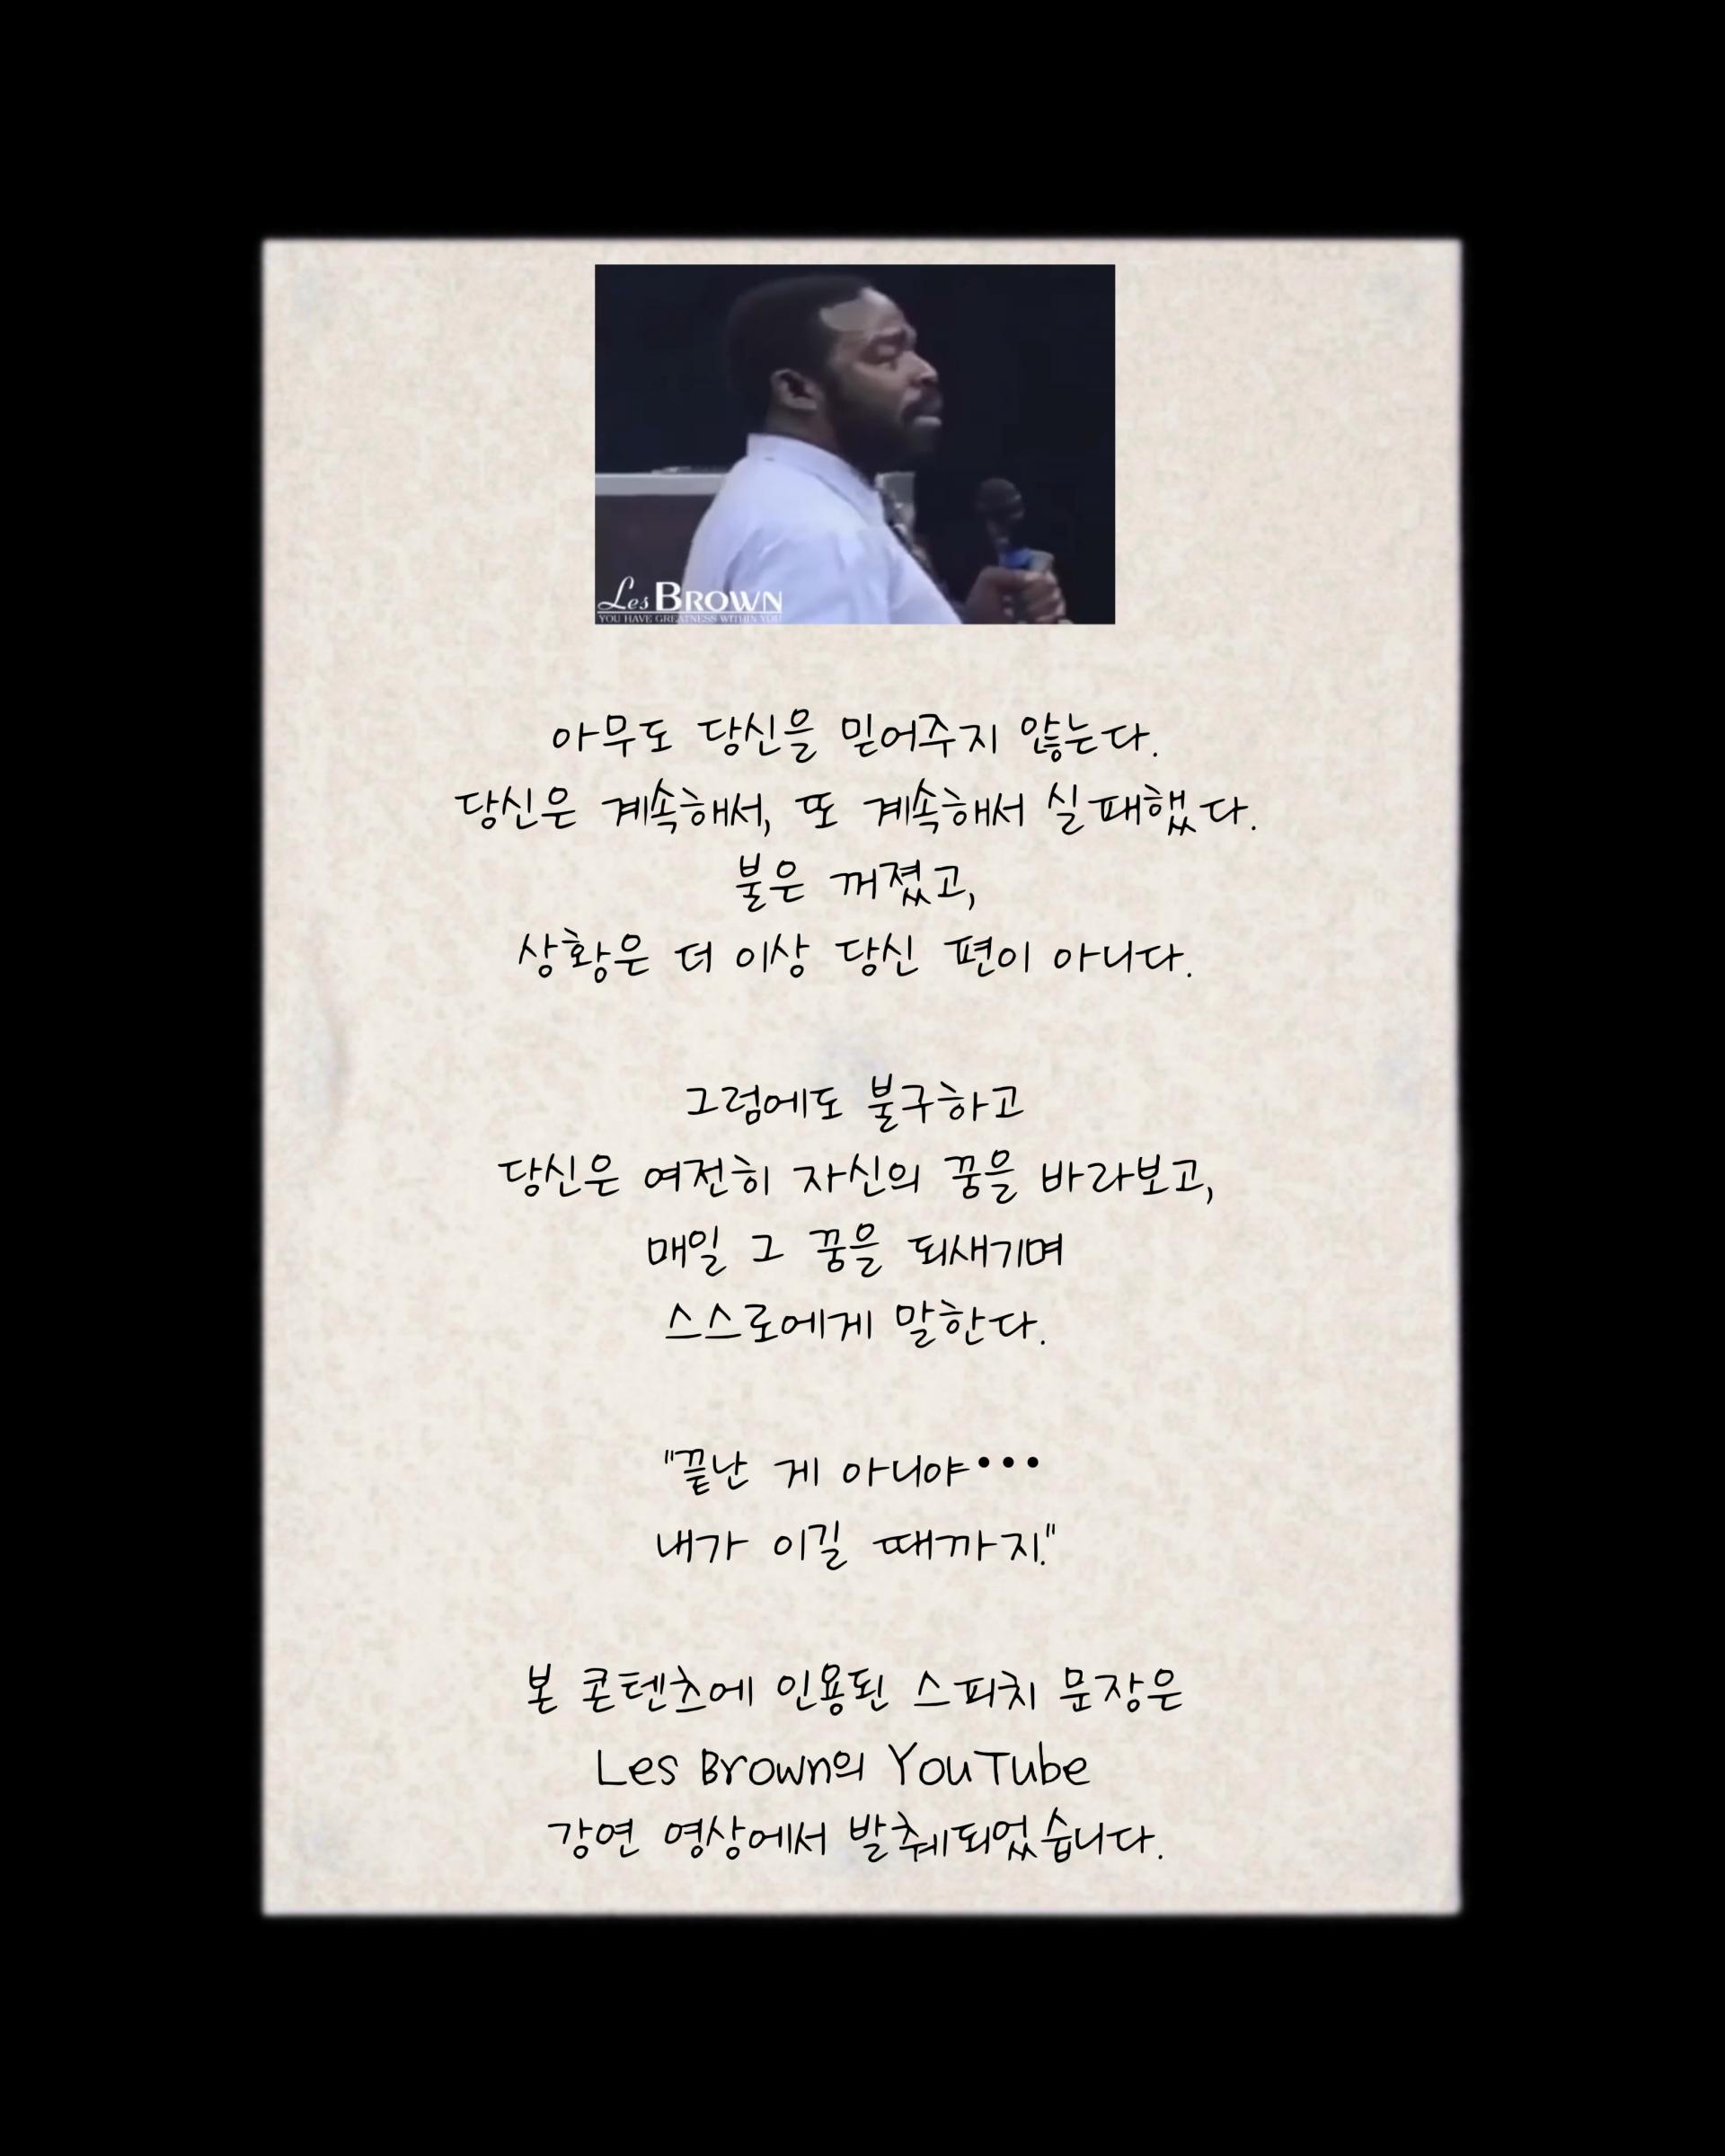 Les BROWN
YOU HAVE GREATNESS WITHIN YOU
아무도 당신을 믿어주지 않는다.
당신은 계속해서, 또 계속해서 실패했다.
불은 꺼졌고,
상황은 더 이상 당신 편이 아니다.
그럼에도 불구하고
당신은 여전히 자신의 꿈을 바라보고,
매일 그 꿈을 되새기며
스스로에게 말한다.
"끝난 게 아니야•••
내가 이길 때까지."
본 콘텐츠에 인용된 스피치 문장은
Les Brown의 YouTube
강연 영상에서 발췌되었습니다.